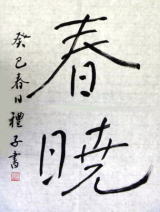 春曉
癸巳春日禮子書